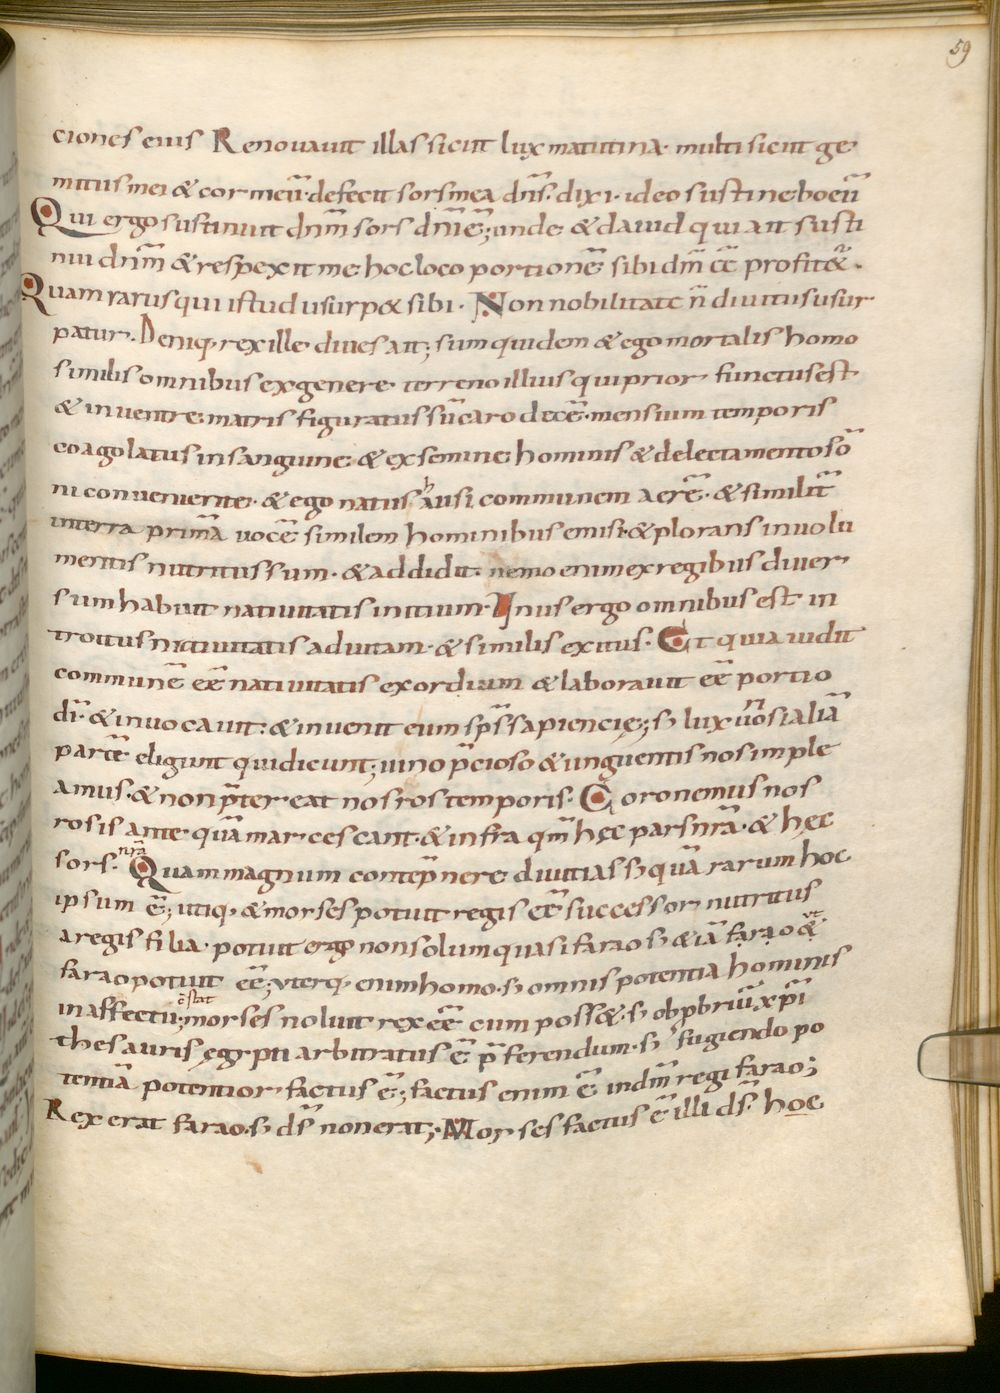 59
ciones eius Renouauit illas sicut lux matutina · multi sicut ge
mitus mei & cor meū · defecit sors mea dn̄s · dixi · ideo sustinebo eū
Qui ergo sustinuit dnm̄ sors dnīē; unde & dauid qui ait susti
nui dnm̄ & respexit me hoc loco portionē sibi dm̄ eē profit&̄ ·
Quam rarus qui istud usurp& sibi · Non nobilitate n̄ diuitiis usur
patur · Deniq, rex ille diues ait; sum quidem & ego mortalis homo
similis omnibus ex genere terreno illius qui prior functus est
& in uentre matris figuratus sū caro decē · mensium temporis
coagolatus in sanguine & ex semine hominis & delectamento sō
ni conueniente · & ego natus hausi communem aerē · & similit̄
in terra primā uocē similem hominibus emisi · & plorans inuolu
mentis nutritus sum · & addidit nemo enim ex regibus diuer
sum habuit natiuitatis initium · Unus ergo omnibus est in
troitus natiuitatis ad uitam · & similis exitus · Et quia uidit
communē eē natiuitatis exordium & laborauit eē portio
dī · & inuocauit : & inuenit eum sps̄ sapiencię; s; luxuōsi aliā
partē eligunt qui dicunt; uino p̄cioso & unguentis nos imple
amus · & non p̄tereat nos ros temporis · Coronemus nos
rosis ante quā marcescant · & infra qm̄ hęc pars nrā · & hęc
sors · nrā Quam magnum contēpnere diuitias s; quā rarum hoc
ipsum ē; utiq, & morses potuit regis eē successor nutritus
a regis filia · potuit ergo non solum quasi farao s; & iā farao & ut
farao potuit eē; uterq, enim homo · s; omnis potentia hominis
in affectu c̄stat; morses noluit rex eē cum poss& · s; obp̄briū xp̄i
thesauris ęgypti arbitratus ē p̄ferendum · s; fugiendo po
tentiā potentior factus ē; factus enim ē in dm̄ regi farao;
Rex erat farao · s; ds̄ non erat; Morses factus ē illi ds̄ · hoc